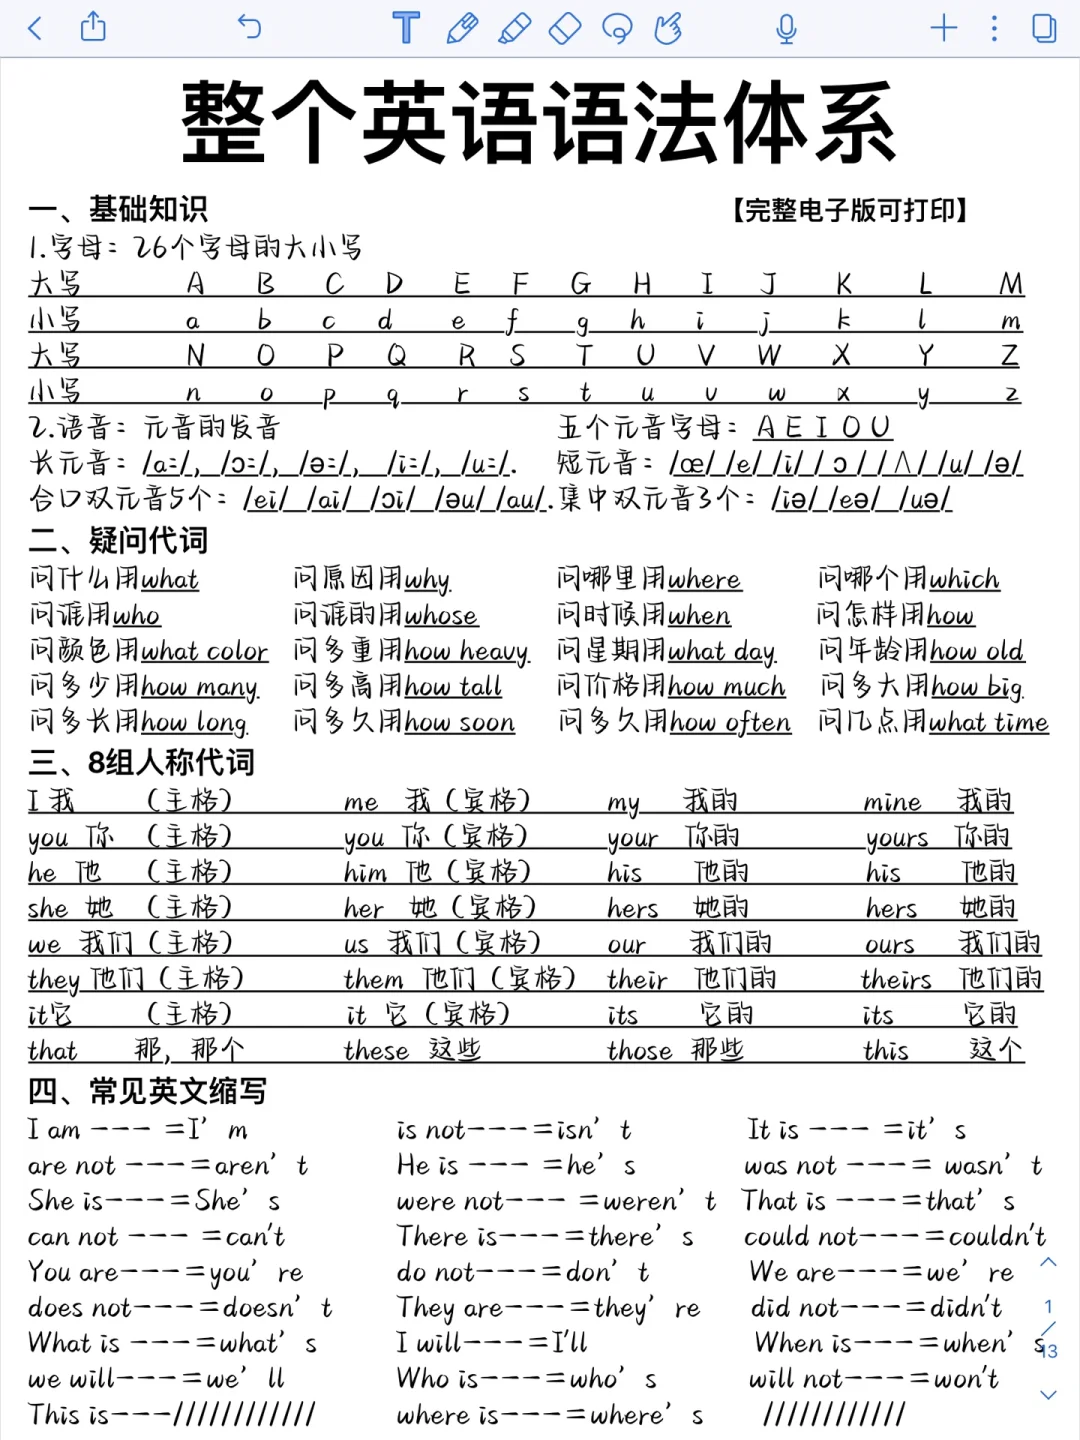 整个英语语法体系
一、基础知识 【完整电子版可打印】
1.字母：26个字母的大小写
大写 A B C D E F G H I J K L M
小写 a b c d e f g h i j k l m
大写 N O P Q R S T U V W X Y Z
小写 n o p q r s t u v w x y z
2.语音：元音的发音 五个元音字母：A E I O U
长元音：/a:/, /ɔ:/, /ə:/, /i:/, /u:/. 短元音：/œ/ /e/ /i/ / ɔ / /Λ/ /u/ /ə/
合口双元音5个：/ei/ /ai/ /ɔi/ /əu/ /au/. 集中双元音3个：/iə/ /eə/ /uə/
二、疑问代词
问什么用what 问原因用why 问哪里用where 问哪个用which
问谁用who 问谁的用whose 问时候用when 问怎样用how
问颜色用what color 问多重用how heavy 问星期用what day 问年龄用how old
问多少用how many 问多高用how tall 问价格用how much 问多大用how big
问多长用how long 问多久用how soon 问多久用how often 问几点用what time
三、8组人称代词
I 我 （主格） me 我（宾格） my 我的 mine 我的
you 你 （主格） you 你（宾格） your 你的 yours 你的
he 他 （主格） him 他（宾格） his 他的 his 他的
she 她 （主格） her 她（宾格） hers 她的 hers 她的
we 我们（主格） us 我们（宾格） our 我们的 ours 我们的
they 他们（主格） them 他们（宾格） their 他们的 theirs 他们的
it它 （主格） it 它（宾格） its 它的 its 它的
that 那，那个 these 这些 those 那些 this 这个
四、常见英文缩写
I am --- =I' m is not---=isn' t It is --- =it' s
are not ---=aren' t He is --- =he' s was not ---= wasn' t
She is---=She' s were not--- =weren' t That is ---=that' s
can not --- =can't There is---=there' s could not---=couldn't
You are---=you' re do not---=don' t We are---=we' re
does not---=doesn' t They are---=they' re did not---=didn't
What is ---=what' s I will---=I'll When is---=when' s
we will---=we' ll Who is---=who' s will not---=won't
This is---//////////// where is---=where' s ////////////
1/13